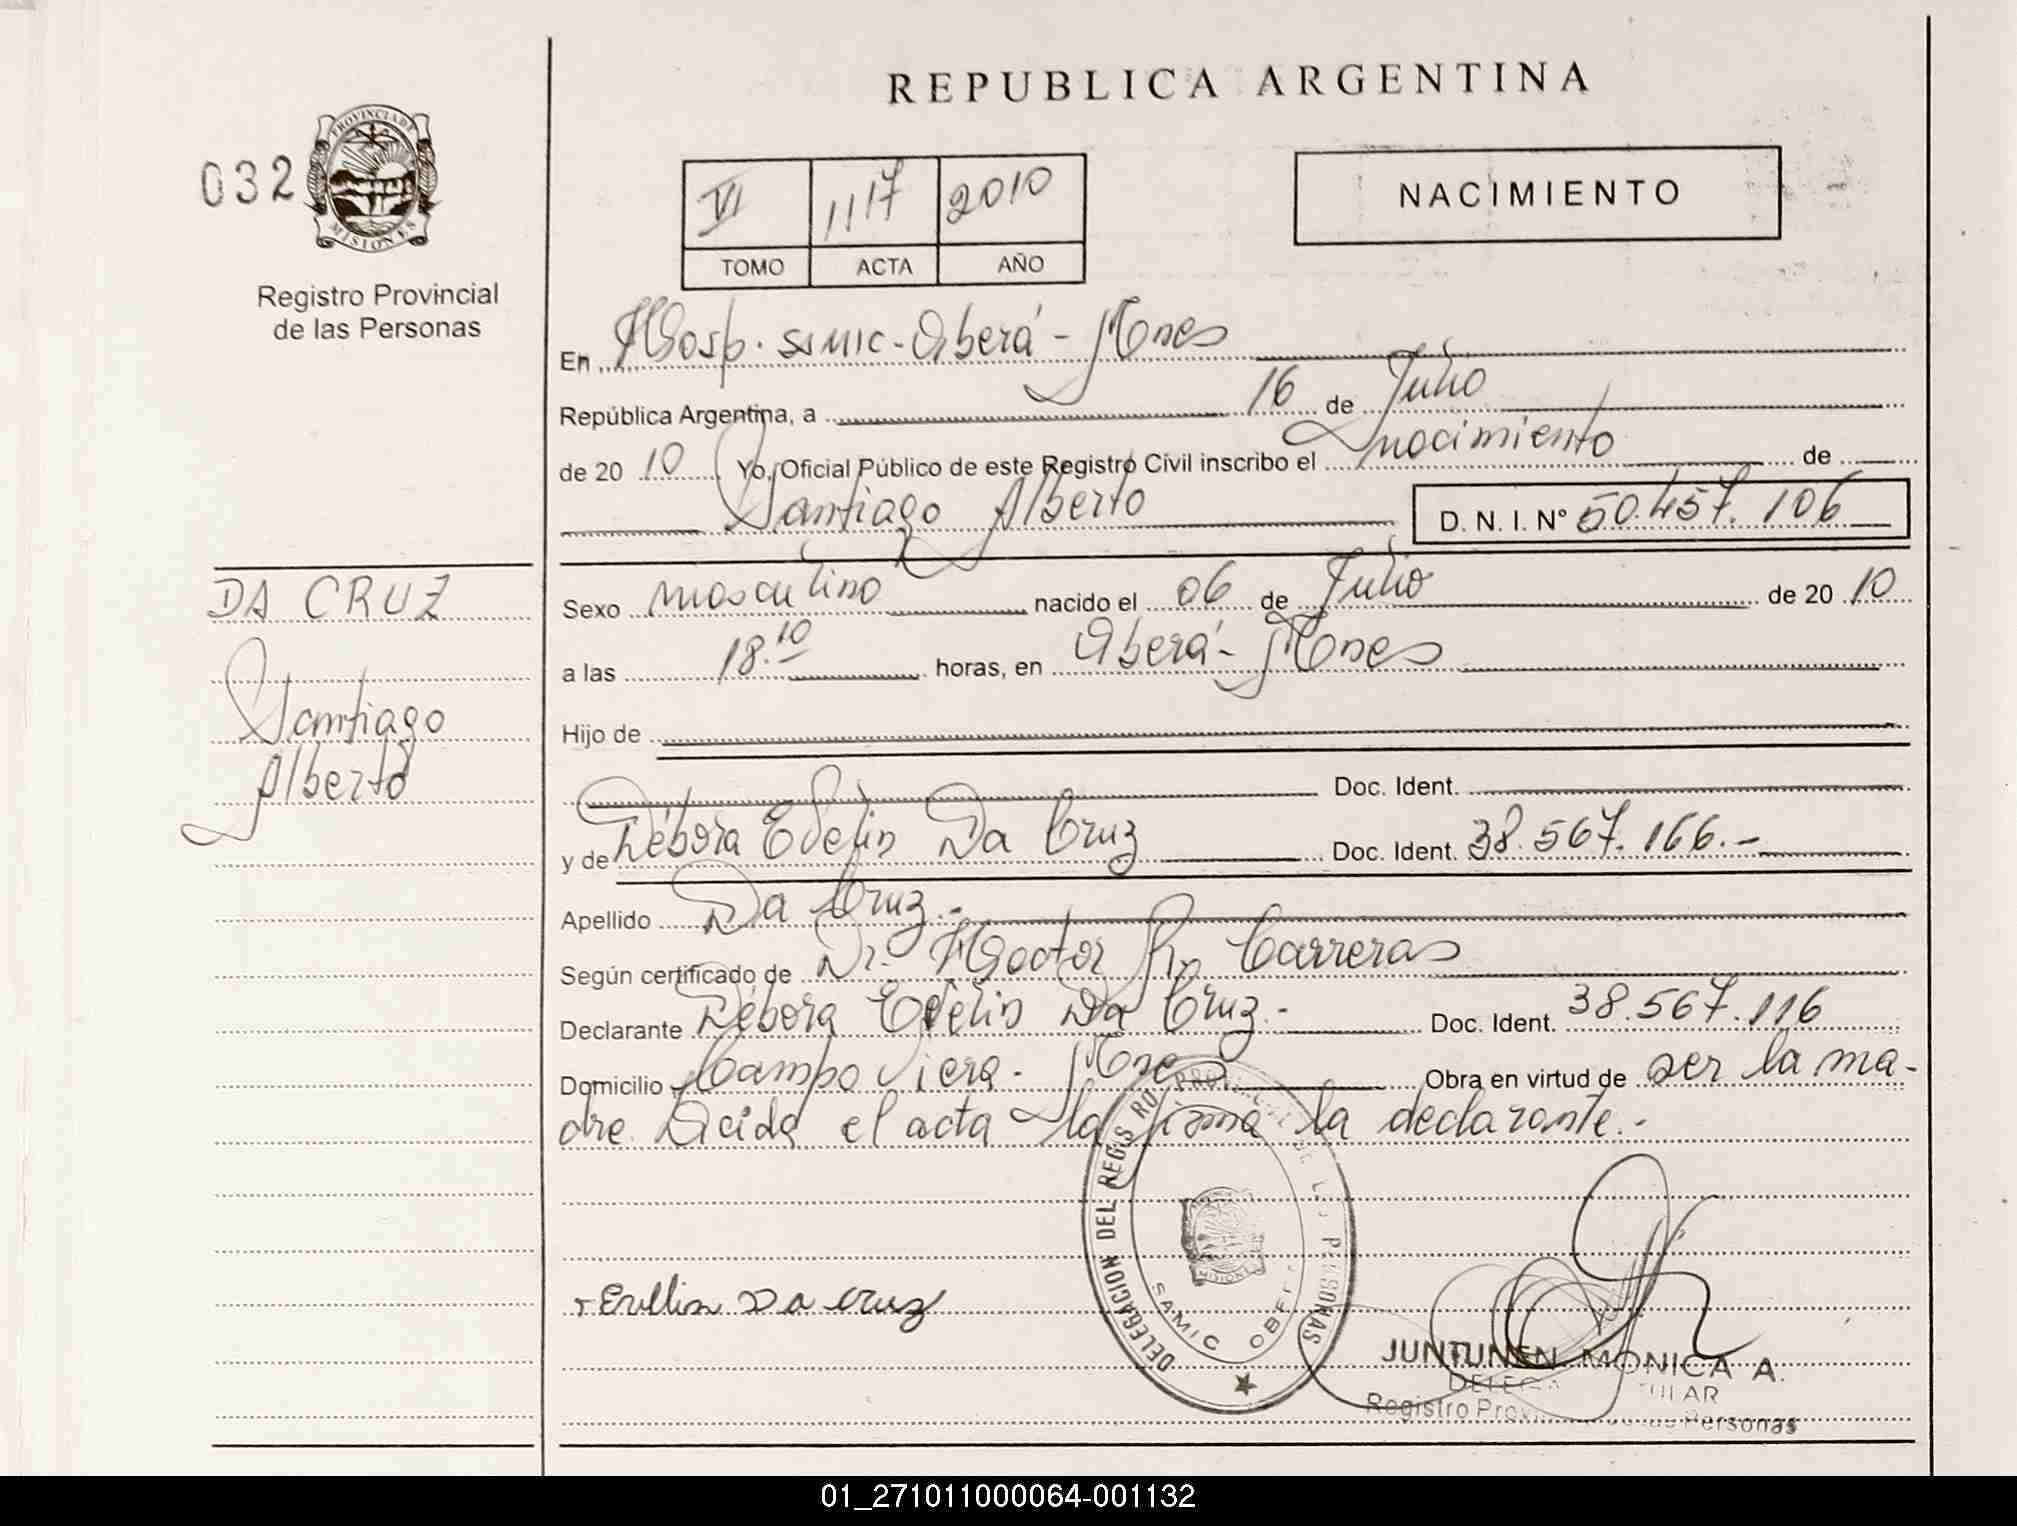 REPUBLICA ARGENTINA
032
PROVINCIA DE
MISIONES
Registro Provincial
de las Personas
VI 1117 2010
TOMO ACTA AÑO
NACIMIENTO
En Hosp. SAMIC - Oberá - Mnes
República Argentina, a 16 de Julio
de 20 10 Yo, Oficial Público de este Registro Civil inscribo el nacimiento de
Santiago Alberto D. N. I. Nº 50.457.106
DA CRUZ
Santiago
Alberto
Sexo masculino nacido el 06 de Julio de 20 10
a las 18.10 horas, en Oberá - Mnes
Hijo de
Doc. Ident.
y de Débora Edelin Da Cruz Doc. Ident. 38.567.166.-
Apellido Da Cruz.-
Según certificado de Dr. Hector Carreras
Declarante Débora Edelin Da Cruz.- Doc. Ident. 38.567.116
Domicilio Campo Viera - Mnes Obra en virtud de ser la ma-
dre. Leida el acta la firma la declarante.-
DELEGACION DEL REGISTRO PROVINCIAL DE LAS PERSONAS
MISIONES
SAMIC
Da Cruz
JUNTUNEN MONICA A.
Registro Personas
01_271011000064-001132